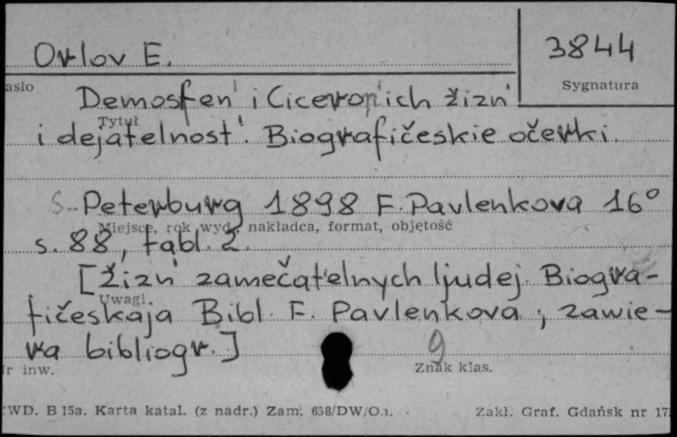 Orlov E. 3844
asło Sygnatura
Demosfen' i Ciceron ich žizn'
Tytuł
i dejatelnost'. Biografičeskie očerki.
S. Peterburg 1898 F. Pavlenkova 16°
Miejsce, rok wyd., nakładca, format, objętość
s. 88, tabl. 2.
[Žizn' zamečatelnych ljudej. Biogra-
Uwagi
fičeskaja Bibl. F. Pavlenkova ; zawie-
ra bibliogr.] 9
r inw. Znak klas.
WD. B 15a. Karta katal. (z nadr.) Zam. 638/DW/O. Zakł. Graf. Gdańsk nr 17